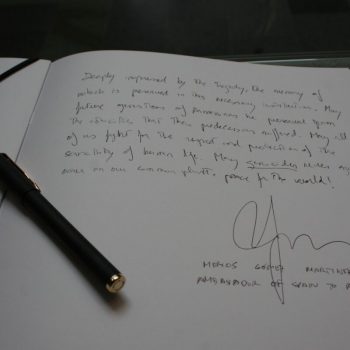 Deeply impressed by the tragedy, the memory of
which is preserved in this necessary institution. May
future generations of Armenians be preserved from
the atrocities that their predecessors suffered. May all
of us fight for the respect and protection of the
sanctity of human life. May genocides never
on our common planet. peace for the world!
MARCOS GOMEZ MARTINEZ
AMBASSADOR OF SPAIN TO